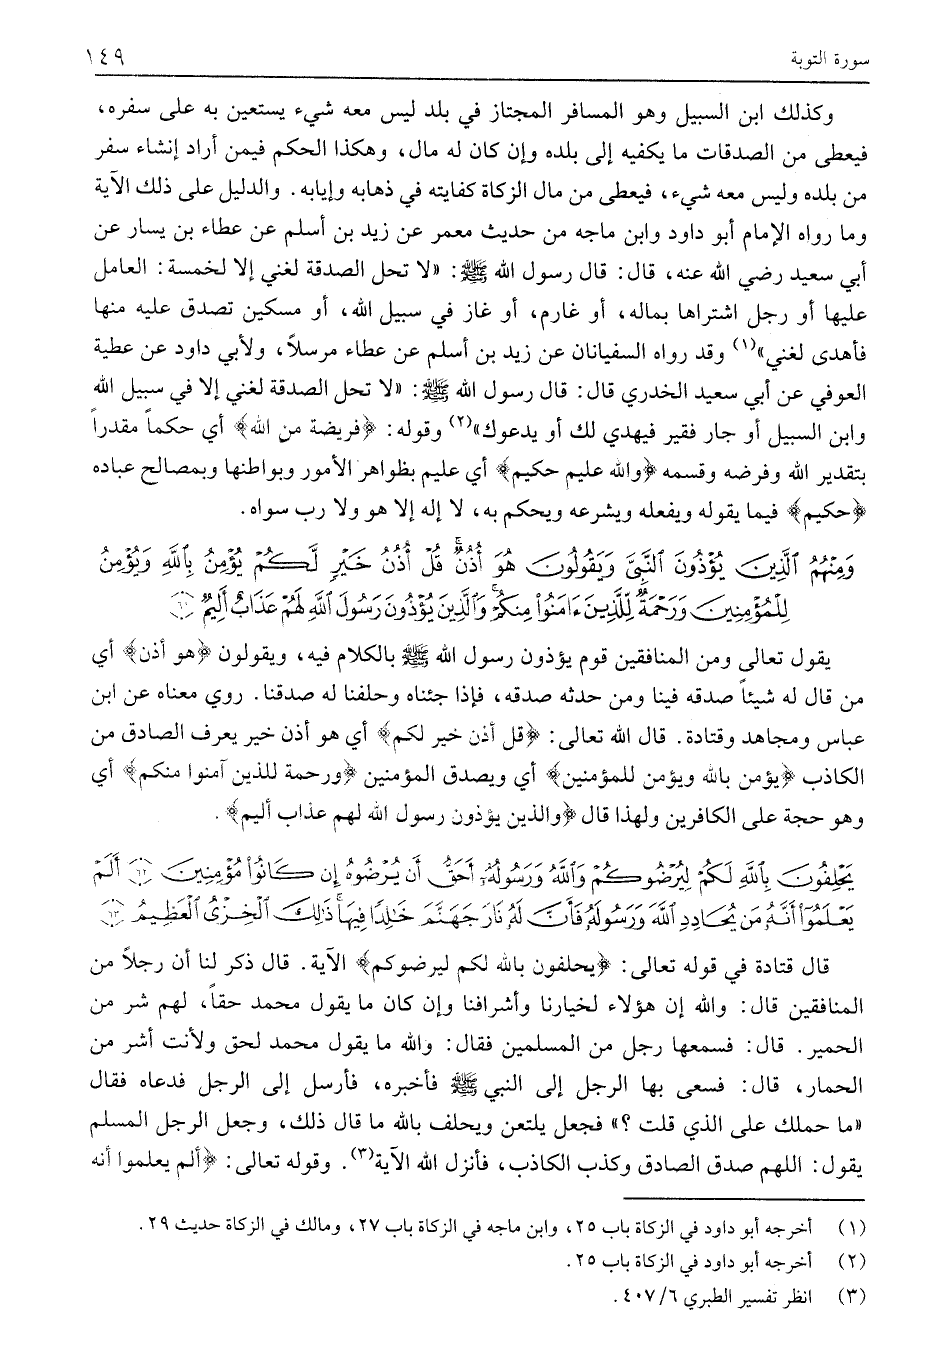 سورة التوبة ١٤٩
وكذلك ابن السبيل وهو المسافر المجتاز في بلد ليس معه شيء يستعين به على سفره،
فيعطى من الصدقات ما يكفيه إلى بلده وإن كان له مال، وهكذا الحكم فيمن أراد إنشاء سفر
من بلده وليس معه شيء، فيعطى من مال الزكاة كفايته في ذهابه وإيابه. والدليل على ذلك الآية
وما رواه الإمام أبو داود وابن ماجه من حديث معمر عن زيد بن أسلم عن عطاء بن يسار عن
أبي سعيد رضي الله عنه، قال: قال رسول الله ﷺ: «لا تحل الصدقة لغني إلا لخمسة: العامل
عليها أو رجل اشتراها بماله، أو غارم، أو غاز في سبيل الله، أو مسكين تصدق عليه منها
فأهدى لغني»(١) وقد رواه السفيانان عن زيد بن أسلم عن عطاء مرسلاً، ولأبي داود عن عطية
العوفي عن أبي سعيد الخدري قال: قال رسول الله ﷺ: «لا تحل الصدقة لغني إلا في سبيل الله
وابن السبيل أو جار فقير فيهدي لك أو يدعوك»(٢) وقوله: ﴿فريضة من الله﴾ أي حكماً مقدراً
بتقدير الله وفرضه وقسمه ﴿والله عليم حكيم﴾ أي عليم بظواهر الأمور وبواطنها وبمصالح عباده
﴿حكيم﴾ فيما يقوله ويفعله ويشرعه ويحكم به، لا إله إلا هو ولا رب سواه.
وَمِنْهُمُ ٱلَّذِينَ يُؤْذُونَ ٱلنَّبِىَّ وَيَقُولُونَ هُوَ أُذُنٌ ۚ قُلْ أُذُنُ خَيْرٍ لَّكُمْ يُؤْمِنُ بِٱللَّهِ وَيُؤْمِنُ
لِلْمُؤْمِنِينَ وَرَحْمَةٌ لِّلَّذِينَ ءَامَنُوا۟ مِنكُمْ ۚ وَٱلَّذِينَ يُؤْذُونَ رَسُولَ ٱللَّهِ لَهُمْ عَذَابٌ أَلِيمٌ ﴿٦١﴾
يقول تعالى ومن المنافقين قوم يؤذون رسول الله ﷺ بالكلام فيه، ويقولون ﴿هو أذن﴾ أي
من قال له شيئاً صدقه فينا ومن حدثه صدقه، فإذا جئناه وحلفنا له صدقنا. روي معناه عن ابن
عباس ومجاهد وقتادة. قال الله تعالى: ﴿قل أذن خير لكم﴾ أي هو أذن خير يعرف الصادق من
الكاذب ﴿يؤمن بالله ويؤمن للمؤمنين﴾ أي ويصدق المؤمنين ﴿ورحمة للذين آمنوا منكم﴾ أي
وهو حجة على الكافرين ولهذا قال ﴿والذين يؤذون رسول الله لهم عذاب أليم﴾.
يَحْلِفُونَ بِٱللَّهِ لَكُمْ لِيُرْضُوكُمْ وَٱللَّهُ وَرَسُولُهُۥٓ أَحَقُّ أَن يُرْضُوهُ إِن كَانُوا۟ مُؤْمِنِينَ ﴿٦٢﴾ أَلَمْ
يَعْلَمُوٓا۟ أَنَّهُۥ مَن يُحَادِدِ ٱللَّهَ وَرَسُولَهُۥ فَأَنَّ لَهُۥ نَارَ جَهَنَّمَ خَٰلِدًا فِيهَا ۚ ذَٰلِكَ ٱلْخِزْىُ ٱلْعَظِيمُ ﴿٦٣﴾
قال قتادة في قوله تعالى: ﴿يحلفون بالله لكم ليرضوكم﴾ الآية. قال ذكر لنا أن رجلاً من
المنافقين قال: والله إن هؤلاء لخيارنا وأشرافنا وإن كان ما يقول محمد حقاً، لهم شر من
الحمير. قال: فسمعها رجل من المسلمين فقال: والله ما يقول محمد لحق ولأنت أشر من
الحمار، قال: فسعى بها الرجل إلى النبي ﷺ فأخبره، فأرسل إلى الرجل فدعاه فقال
«ما حملك على الذي قلت ؟» فجعل يلتعن ويحلف بالله ما قال ذلك، وجعل الرجل المسلم
يقول: اللهم صدق الصادق وكذب الكاذب، فأنزل الله الآية(٣). وقوله تعالى: ﴿ألم يعلموا أنه
(١) أخرجه أبو داود في الزكاة باب ٢٥، وابن ماجه في الزكاة باب ٢٧، ومالك في الزكاة حديث ٢٩.
(٢) أخرجه أبو داود في الزكاة باب ٢٥.
(٣) انظر تفسير الطبري ٤٠٧/٦.